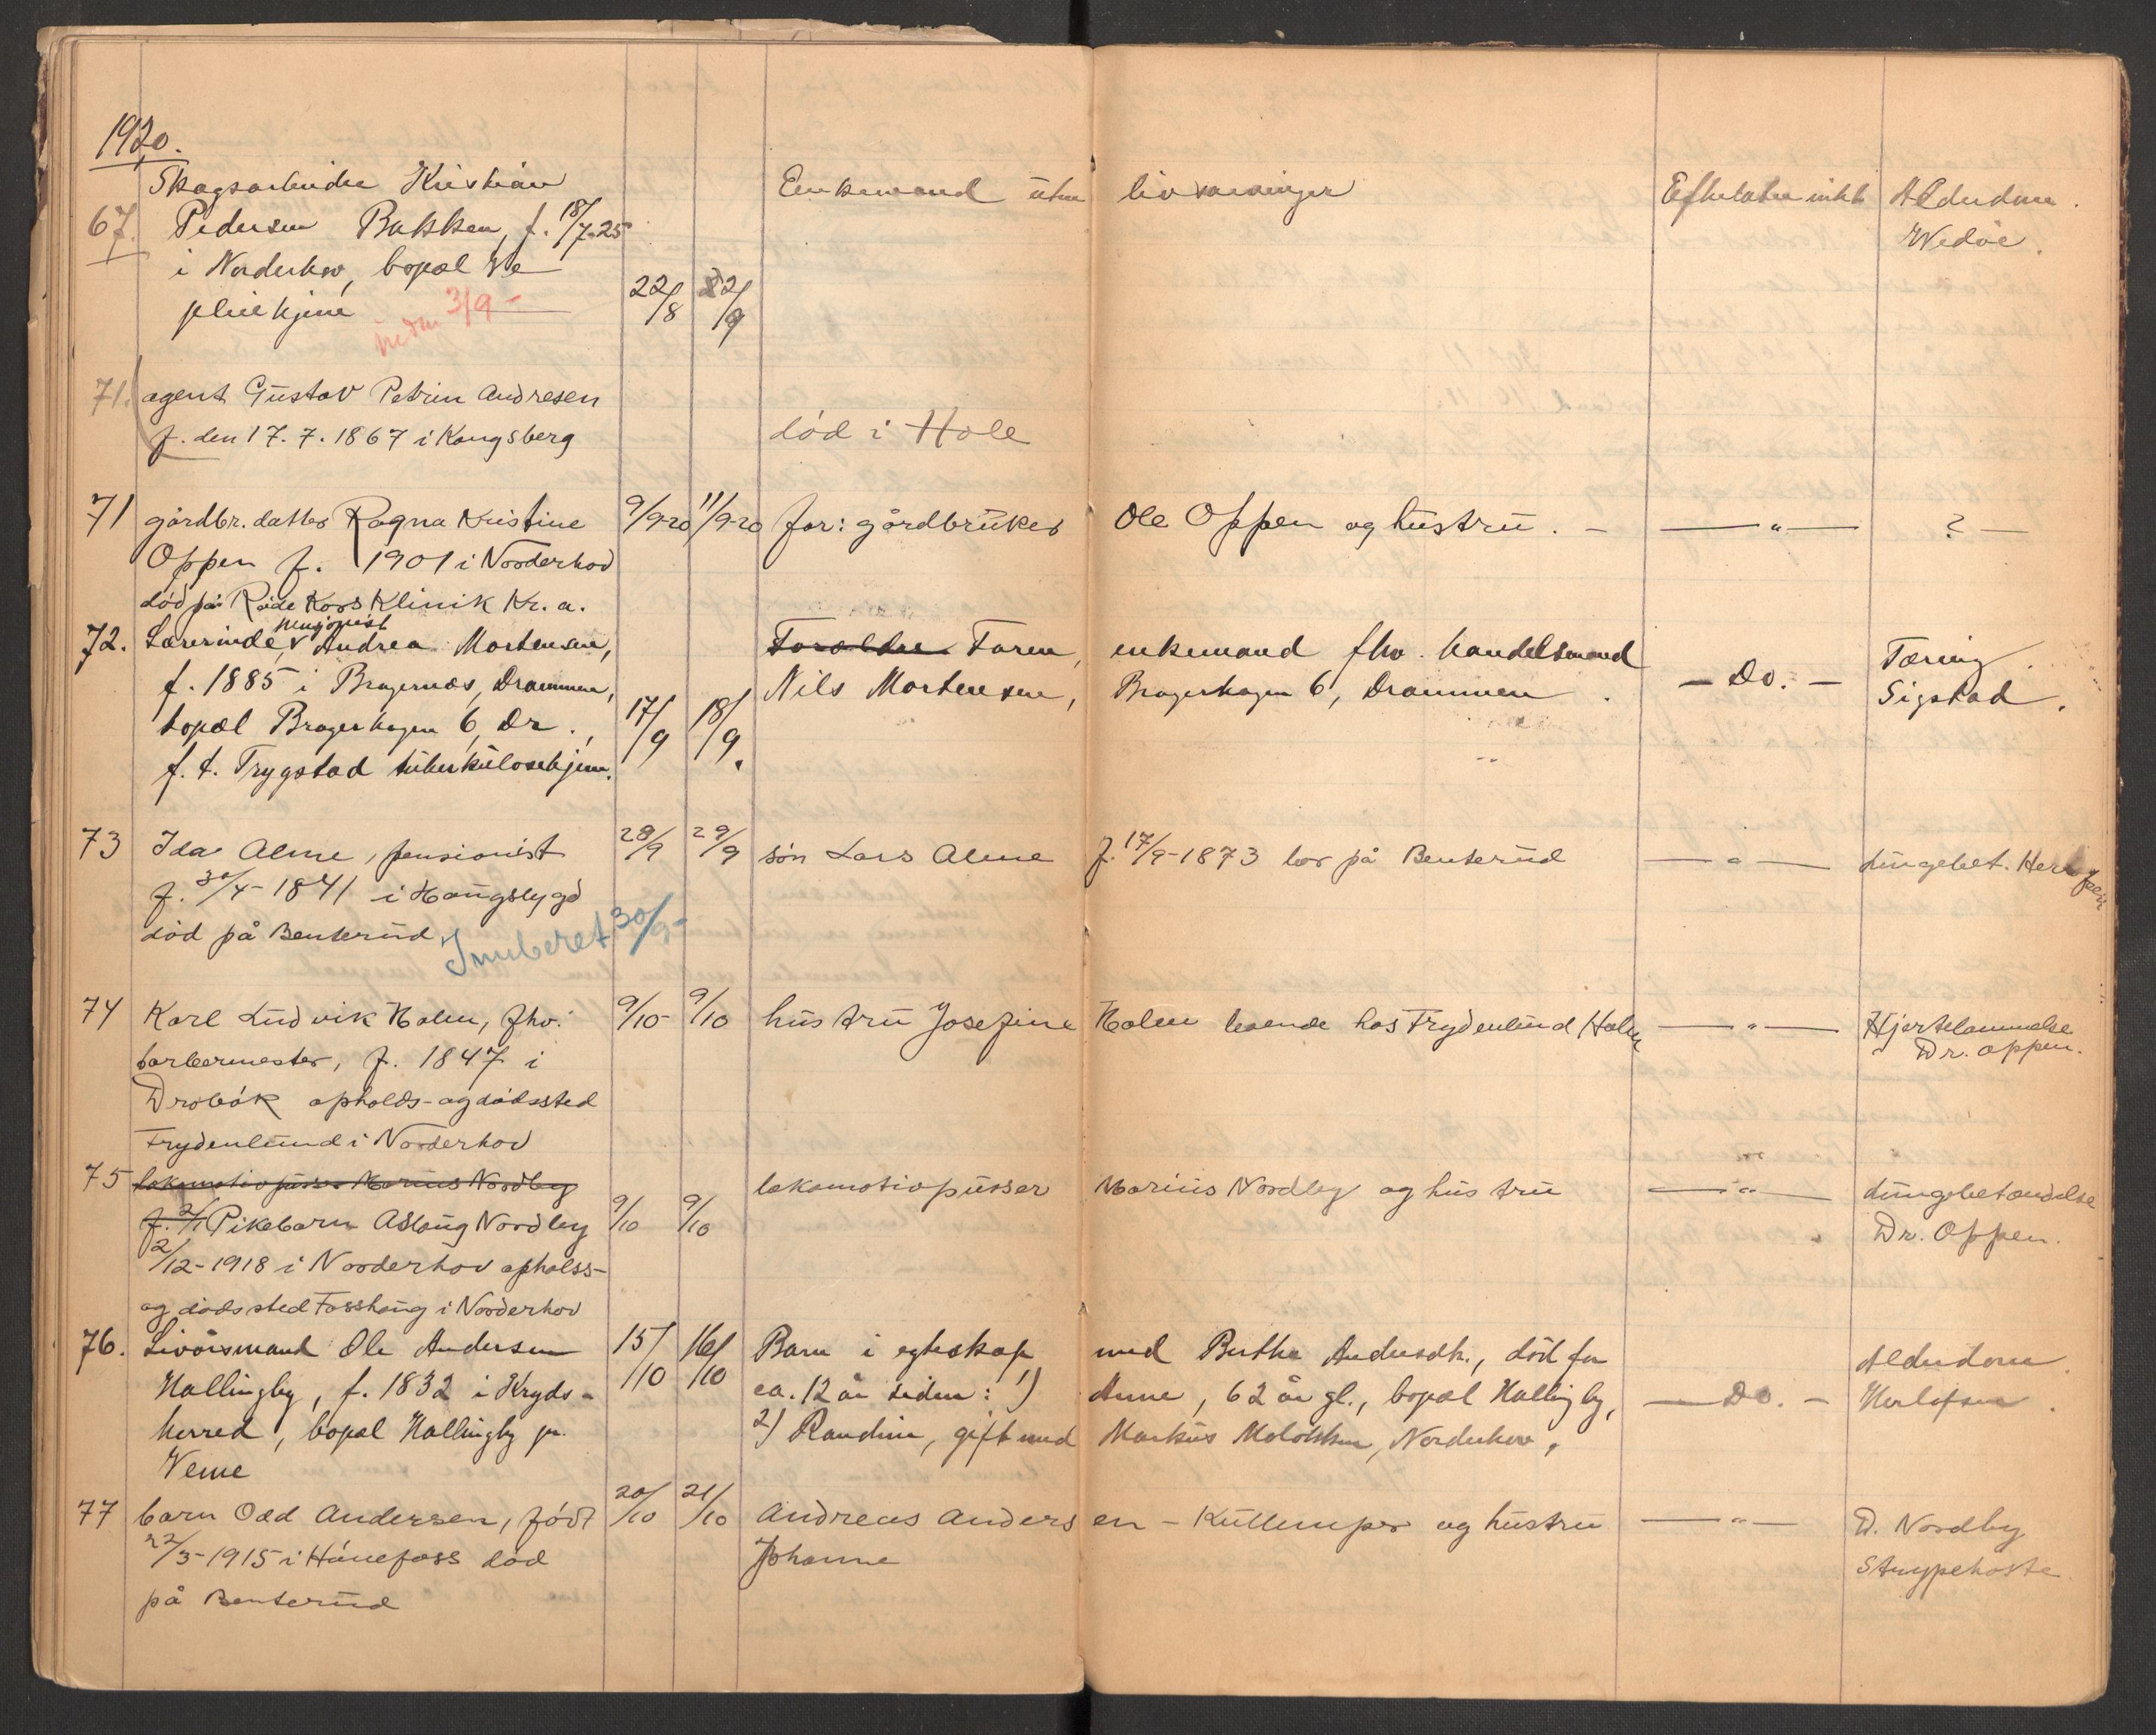 1920.
67. Skogsarbeider Kristian Enkemand uten livsarvinger Efterlater intet Alderdom.
Pedersen Bakken, f. 18/7-25 Wedøe.
i Norderhov, bopæl Ve
pleiehjem 3/9 - 22/8 22/9
71. agent Gustav Petrin Andresen
f. den 17.7.1867 i Kongsberg død i Hole
71 gårdbr. datter Ragna Kristine 9/9-20 11/9-20 far: gårdbruker Ole Oppen og hustru. - — " — ? —
Oppen f. 1901 i Norderhov
død på Røde Kors Klinik Kr. a.
72. Lærerinde, pensjonist Andrea Mortensen, Forældre Faren, enkemand fhv. handelsmand — Do. — Tæring.
f. 1885 i Bragernæs, Drammen, 17/9 18/9. Nils Mortensen, Bragerhagen 6, Drammen. Sigstad.
bopæl Bragerhagen 6, Dr.,
f. t. Trygstad tuberkulosehjem.
73 Ida Alme, pensionist 28/9 29/9 søn Lars Alme f. 17/9-1873 bor på Benterud — " — lungebet. Herlofsen
f. 30/4-1841 i Haugsbygd
død på Benterud. Innberet 30/9-
74 Karl Ludvik Holm, fhv. 9/10- 9/10 hustru Josefine Holm boende hos Frydenlund Holm — " — Hjertelammelse
barbermester, f. 1847 i Dr. Oppen.
Drøbak opholds- og dødssted
Frydenlund i Norderhov
75 lokomotivpusser Marius Nordby lokomotivpusser Marius Nordby og hustru — " — lungebetændelse
f. 2/1 Pikebarn Aslaug Nordby 9/10 9/10 Dr. Oppen.
2/12-1918 i Norderhov opholss-
og dødssted Fosshaug i Norderhov
76. Livøismand Ole Andersen 15/10 16/10 Barn i egteskap med Berthe Andersdtr., død for Alderdom
Hallingby, f. 1832 i Kryds- ca. 12 år siden: 1) Anne, 62 år gl., bopæl Hallingby, — Do. — Herlofsen.
herred, bopæl Hallingby pr. 2) Randine, gift med Markus Moløkken, Norderhov.
Veme
77 barn Odd Andersen, født 20/10 21/10 Andreas Andersen - Kullemper og hustru — " — D. Nordby
22/5-1915 i Hønefoss død Johanne Strypehoste.
på Benterud